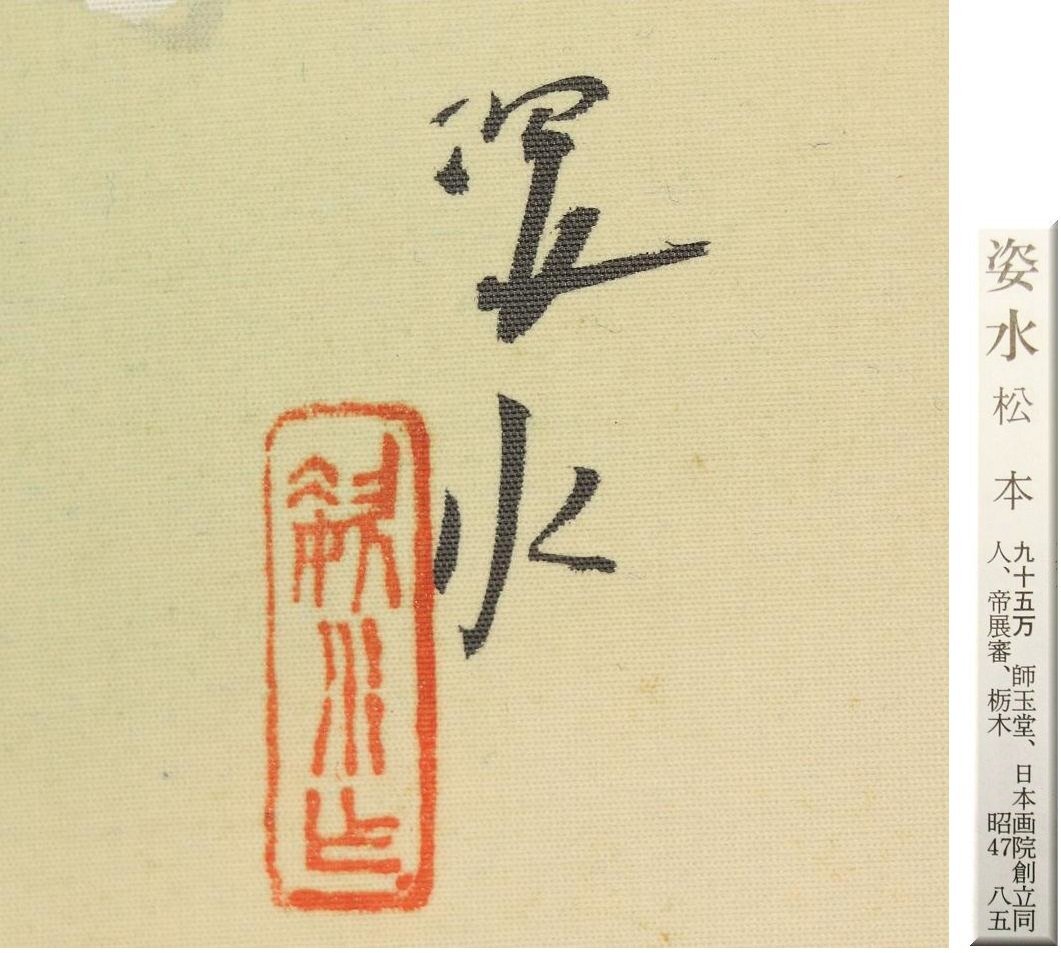 姿水
姿水 松本
九十五万 師玉堂、日本画院創立同
人、帝展審、栃木 昭47 八五